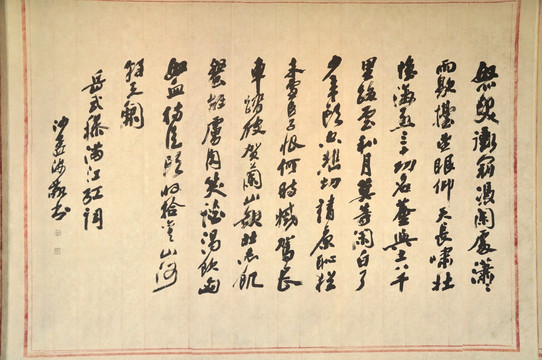 怒髮衝冠憑闌處瀟瀟
雨歇擡望眼仰天長嘯壯
懷激烈三十功名塵與土八千
里路雲和月莫等閑白了
少年頭空悲切靖康恥猶
未雪臣子恨何時滅駕長
車踏破賀蘭山缺壯志飢
餐胡虜肉笑談渴飲匈
奴血待從頭收拾舊山河
朝天闕
岳武穆滿江紅詞
沙孟海敬書